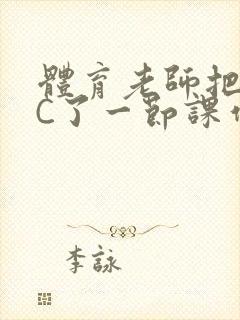 體育老師把
C了一節課作
李詠